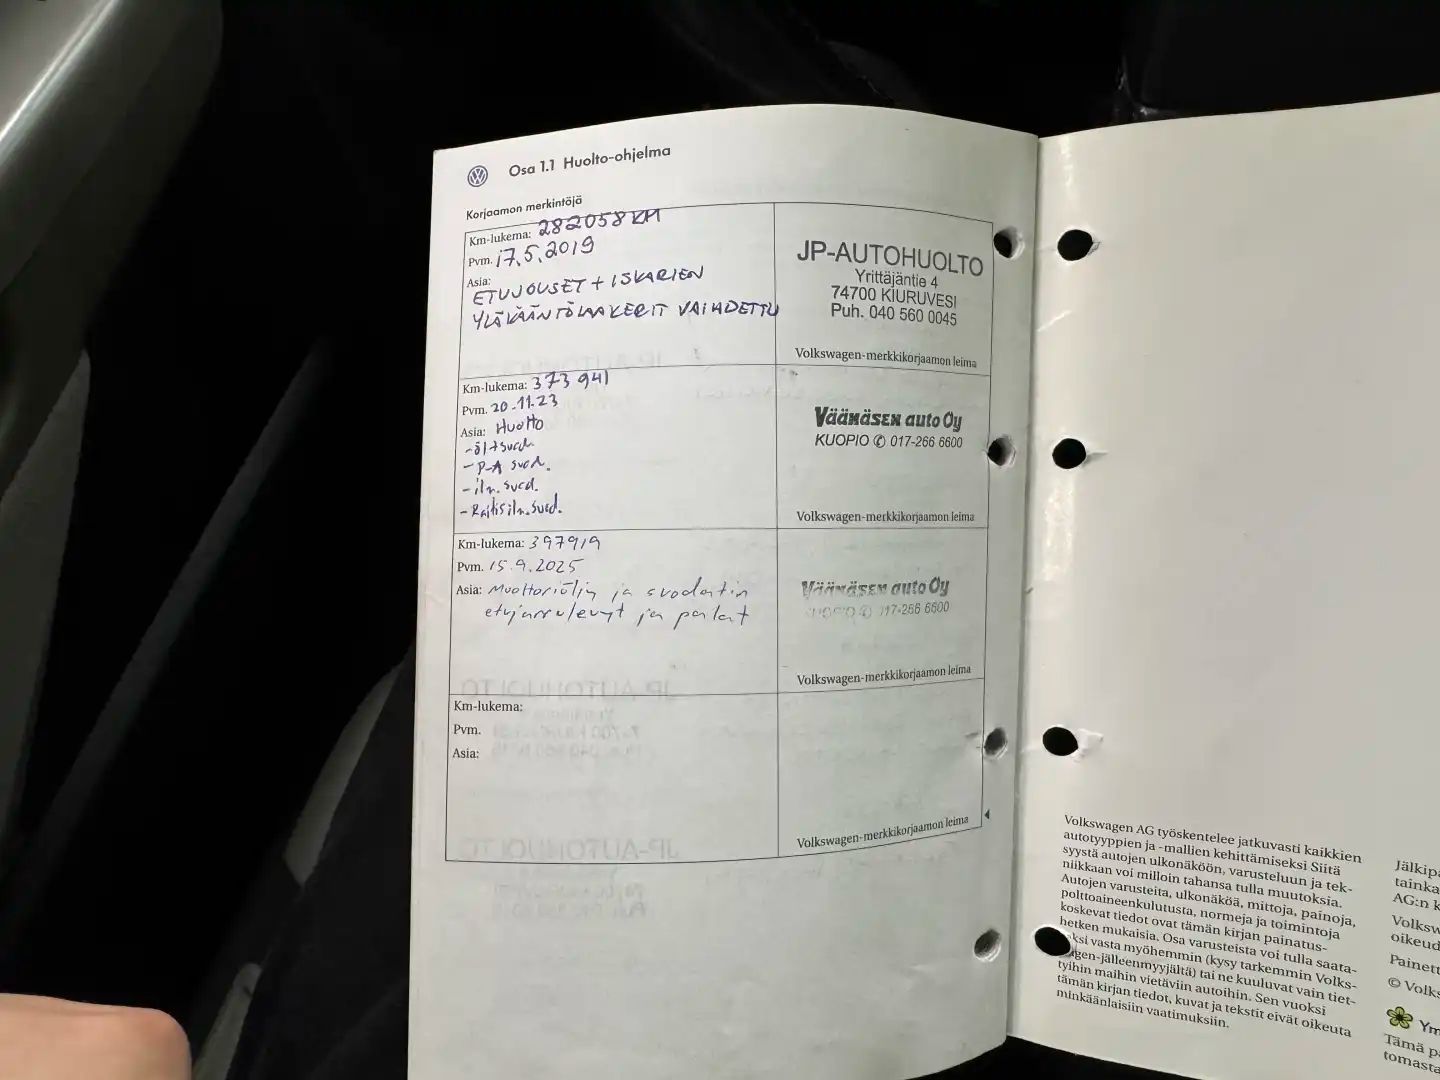 Osa 1.1 Huolto-ohjelma
Korjaamon merkintöjä
Km-lukema: 282058 KM
Pvm. 17.5.2019
Asia:
ETUJOUSET + ISKARIEN
YLÄKÄÄNTÖLAAKERIT VAIHDETTU
JP-AUTOHUOLTO
Yrittäjäntie 4
74700 KIURUVESI
Puh. 040 560 0045
Volkswagen-merkkikorjaamon leima
Km-lukema: 373 941
Pvm. 20.11.23
Asia: Huolto
-öljysuod.
-P-A suod.
-iln.suod.
-Raitisiln.suod.
Väänäsen auto Oy
KUOPIO ✆ 017-266 6600
Volkswagen-merkkikorjaamon leima
Km-lukema: 397919
Pvm. 15.9.2025
Asia: Moottoriöljy ja suodatin
etujarrulevyt ja palat
Väänäsen auto Oy
KUOPIO ✆ 017-266 6600
Volkswagen-merkkikorjaamon leima
Km-lukema:
Pvm.
Asia:
Volkswagen-merkkikorjaamon leima
Volkswagen AG työskentelee jatkuvasti kaikkien
autotyyppien ja -mallien kehittämiseksi Siitä
syystä autojen ulkonäköön, varusteluun ja tek-
niikkaan voi milloin tahansa tulla muutoksia.
Autojen varusteita, ulkonäköä, mittoja, painoja,
polttoaineenkulutusta, normeja ja toimintoja
koskevat tiedot ovat tämän kirjan painatus-
hetken mukaisia. Osa varusteista voi tulla saata-
ksi vasta myöhemmin (kysy tarkemmin Volks-
wagen-jälleenmyyjältä) tai ne kuuluvat vain tiet-
tyihin maihin vietäviin autoihin. Sen vuoksi
tämän kirjan tiedot, kuvat ja tekstit eivät oikeuta
minkäänlaisiin vaatimuksiin.
Jälkip
tainka
AG:n k
Volksw
oikeud
Painett
© Volks
Ym
Tämä p
tomast